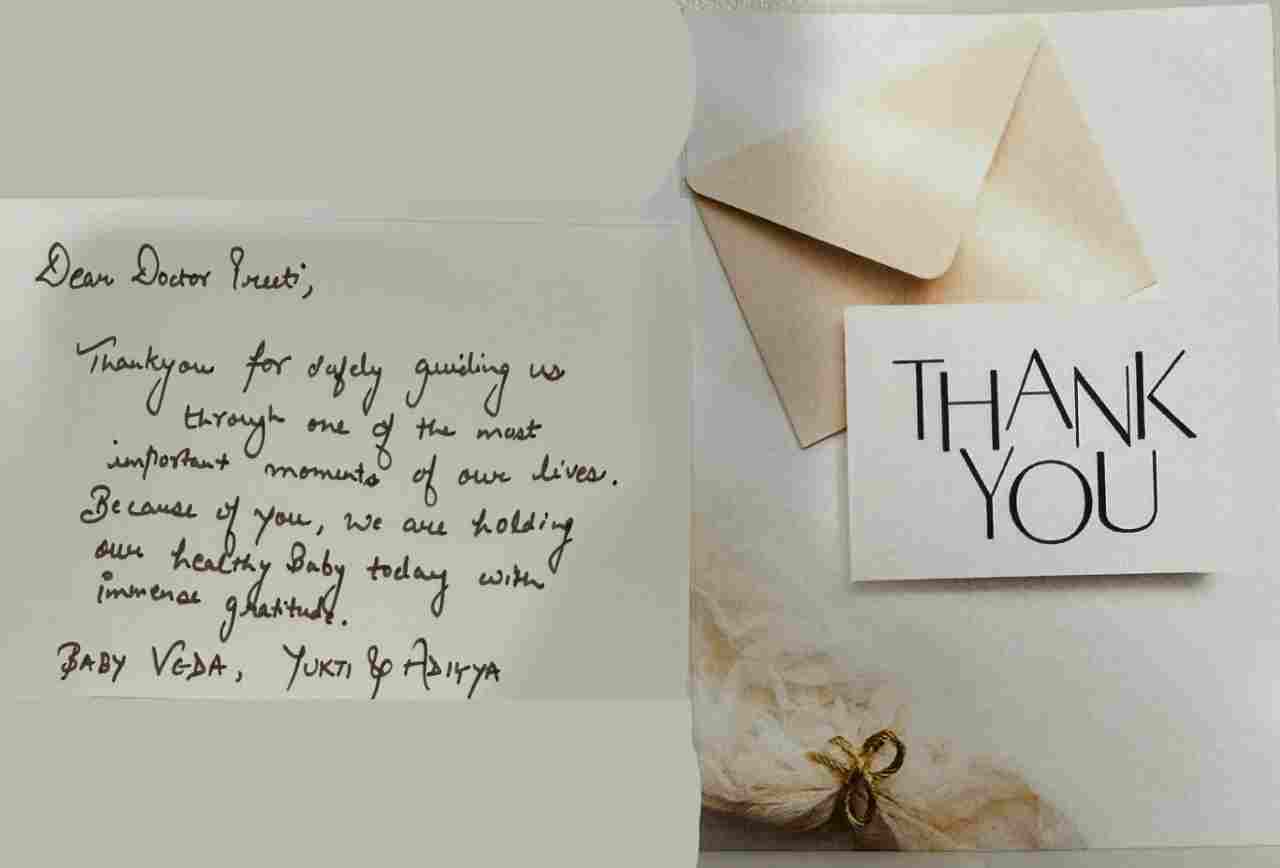 Dear Doctor Preeti,
Thankyou for safely guiding us
through one of the most
important moments of our lives.
Because of you, we are holding
our healthy Baby today with
immense gratitude.
BABY VEDA, YUKTI & ADITYA
THANK
YOU